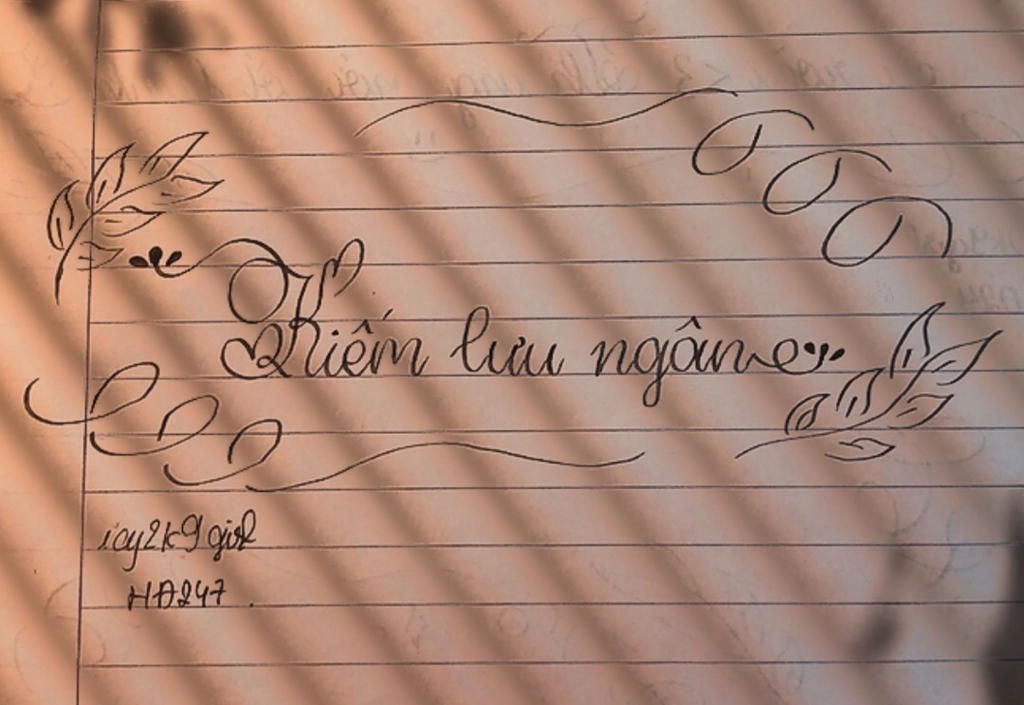 Kiếm lưu ngân
icy2k9 girl
HA247